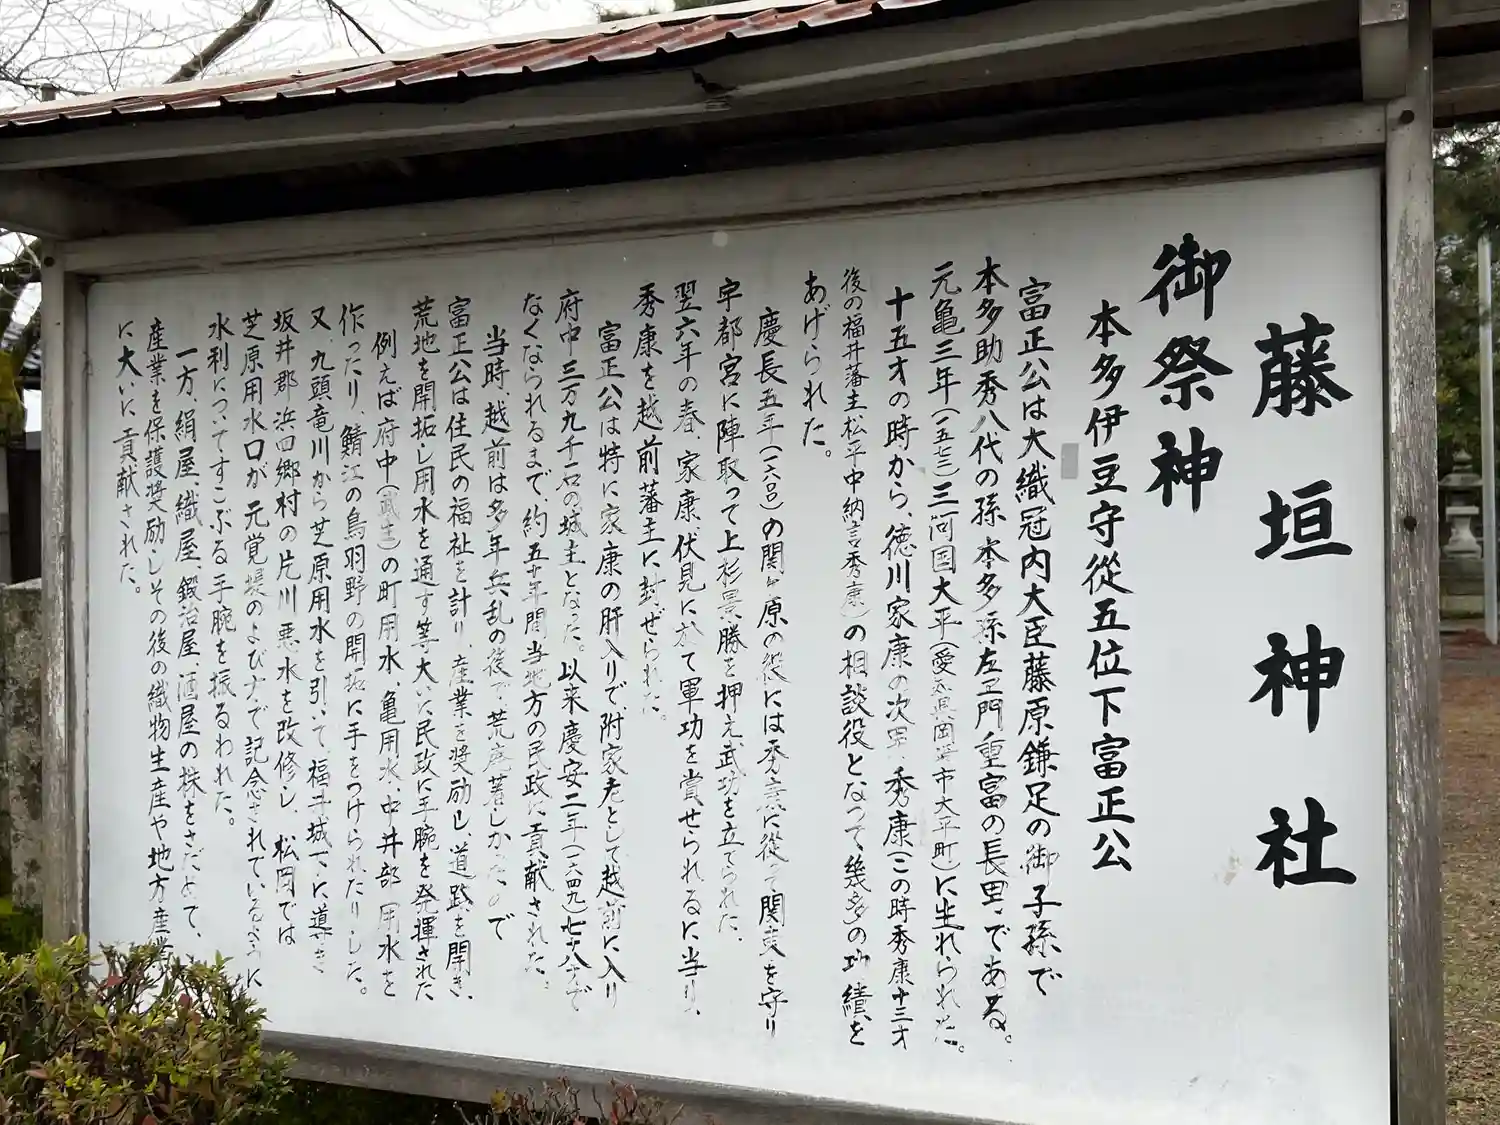 藤垣神社
御祭神
本多伊豆守従五位下富正公
富正公は大織冠内大臣藤原鎌足の御子孫で
本多助秀八代の孫本多孫左ヱ門重富の長男である。
元亀三年(一五七二)三河国大平(愛知県岡崎市大平町)に生れられた。
十五才の時から、徳川家康の次男秀康(この時秀康十三才
後の福井藩主松平中納言秀康)の相談役となって幾多の功績を
あげられた。
慶長五年(一六〇〇)の関ヶ原の役には秀康に従って関東を守り
宇都宮に陣取って上杉景勝を押え武功を立てられた。
翌六年の春、家康、伏見に於て軍功を賞せられるに当り、
秀康を越前藩主に封ぜられた。
富正公は特に家康の肝入りで、附家老として越前に入り
府中三万九千石の城主となった。以来慶安二年(一六四九)七十八才で
なくなられるまで、約五十年間当地方の民政に貢献された。
当時、越前は多年兵乱の後で、荒廃著しかったので
富正公は住民の福祉を計り、産業を奨励し、道路を開き、
荒地を開拓し用水を通す等大いに民政に手腕を発揮された
例えば府中(武生)の町用水、亀用水、中井部用水を
作ったり、鯖江の鳥羽野の開拓に手をつけられたりした。
又、九頭竜川から芝原用水を引いて、福井城下に導き
坂井郡浜四郷村の片川悪水を改修し、松岡では
芝原用水口が元覚堤のよび方で記念されているように
水利についてすこぶる手腕を振るわれた。
一方、絹屋、織屋、鍛治屋、酒屋の株をさだめて、
産業を保護奨励しその後の織物生産や地方産業
に大いに貢献された。